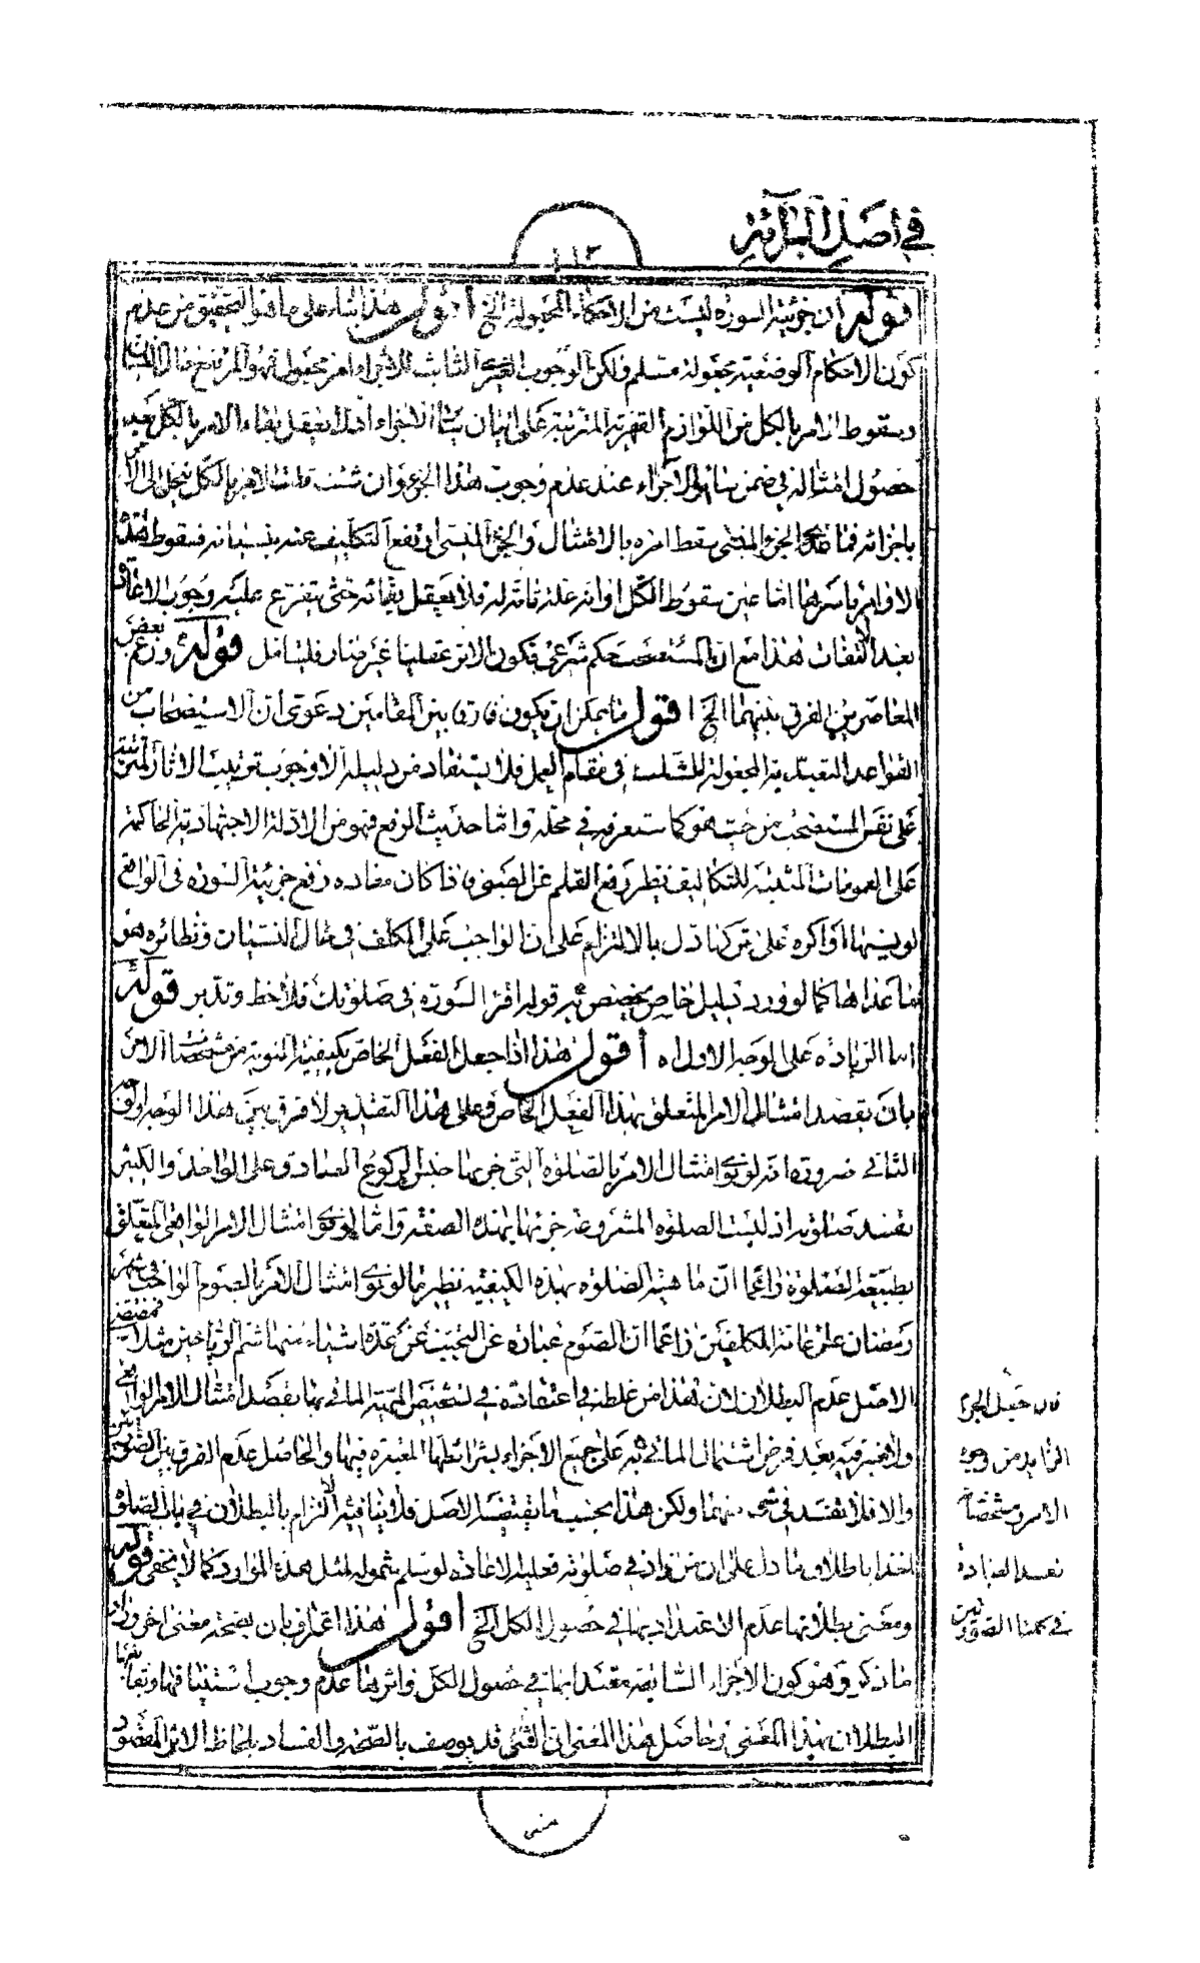 في أصل البرائة
١١٢
قوله ان جزئية السورة ليست من الاحكام المجعولة الخ اقول هذا بناء على ما هو التحقيق من عدم
كون الاحكام الوضعية مجعولة مسلم ولكن الوجوب الغيري الثابت للاجزاء امر مجعول فهو المرتفع حال النسيان
وسقوط الامر بالكل من اللوازم القهرية المترتبة على اتيان بقية الاجزاء اذ لا يعقل بقاء الامر بالكل بعد
حصول امتثاله في ضمن سائر الاجزاء عند عدم وجوب هذا الجزء وان شئت قلت الامر بالكل ينحل الى الامر
باجزائه فما عدا الجزء المنسي سقط امره بالامتثال والجزء المنسي ارتفع التكليف عنه بنسيانه فسقوط هذه
الاوامر باسرها اما عين سقوط الكل او انه علة تامة له فلا يعقل بقائه حتى يتفرع عليه وجوب الاعادة
بعد الالتفات هذا مع ان المستصحب حكم شرعي فكون الاثر عقليا غير ضار فليتامل قوله وزعم بعض
المعاصرين الفرق بينهما الخ اقول ما يمكن ان يكون فارقا بين المقامين دعوى ان الاستصحاب من
القواعد التعبدية المجعولة للشاك في مقام العمل فلا يستفاد من دليله الا وجوب ترتيب الاثار المترتبة
على نفس المستصحب من حيث هو كما ستعرفه في محله واما حديث الرفع فهو من الادلة الاجتهادية الحاكمة
على العمومات المثبتة للتكاليف نظير رفع القلم عن الصبي فاذا كان مفاده رفع جزئية السورة في الواقع
لو نسيها او اكره على تركها دل بالالتزام على ان الواجب على المكلف في حال النسيان ونظائره هو
ما عداها كما لو ورد دليل خاص مخصص لقوله اقرء السورة في صلوتك فلاحظ وتدبر قوله
اما الزيادة على الوجه الاول اه اقول هذا اذا جعل الفعل الخاص بكيفيته المنوية من مشخصات الامر
بان يقصد امتثال الامر المتعلق بهذا الفعل الخاص وعلى هذا التقدير لا فرق بين هذا الوجه والوجه
الثاني ضرورة انه لو نوى امتثال الامر بالصلوة التي جزئها جنس الركوع الصادق على الواحد والكثير
يفسد صلوته اذ ليست الصلوة المشروعة جزئها بهذه الصفة واما لو نوى امتثال الامر الواقعي المتعلق
بطبيعة الصلوة زاعما ان ماهية الصلوة بهذه الكيفية نظير ما لو نوى امتثال الامر بالصوم الواجب في شهر
رمضان على عامة المكلفين زاعما ان الصوم عبارة عن التجنب عن عدة اشياء منها شم الرياحين مثلا فمقتضى
الاصل عدم البطلان لان هذا من غلطه في اعتقاده في تشخيص المهية الماتي بها بقصد امتثال الامر الواقعي
ولا عبرة به بعد فرض اشتمال الماتي به على جميع الاجزاء بشرائطها المعتبرة فيها والحاصل عدم الفرق بين الصورتين
والا فلا يفسد في شيء منهما ولكن هذا بحسب ما يقتضيه الاصل فلا ينافيه الالتزام بالبطلان في باب الصلوة
اخذا باطلاق ما دل على ان من زاد في صلوته فعليه الاعادة لو سلم شموله لمثل هذه الموارد كما لا يخفى قوله
ومعنى بطلانها عدم الاعتداد بها في حصول الكل الخ اقول هذا اعتراف بان للصحة معنى اخر وراء
ما ذكره وهو كون الاجزاء السابقة معتدا بها في حصول الكل واثرها عدم وجوب استينافها وتقابلها
البطلان بهذا المعنى وحاصل هذا المعنى ان الشيء قد يوصف بالصحة والفساد بلحاظ الاثر المقصود
فان جعل الجزء
الزايد من وجه
الامر ومشخصاته
تفسد العبادة
في كلتا الصورتين
منه